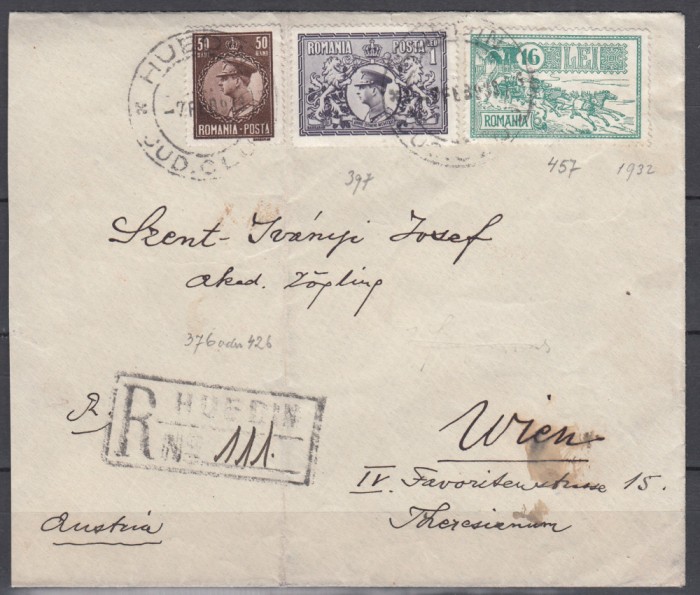 50 BANI 50 BANI
ROMANIA-POSTA
ROMANIA POSTA
1
16 LEI
ROMANIA
HUEDIN
JUD. CLUJ
397
457
1932
Szent-Iványi Josef
akad. Zögling
376 oder 426
R
R HUEDIN
No 111.
Wien
IV. Favoritenstrasse 15.
Theresianum
Austria